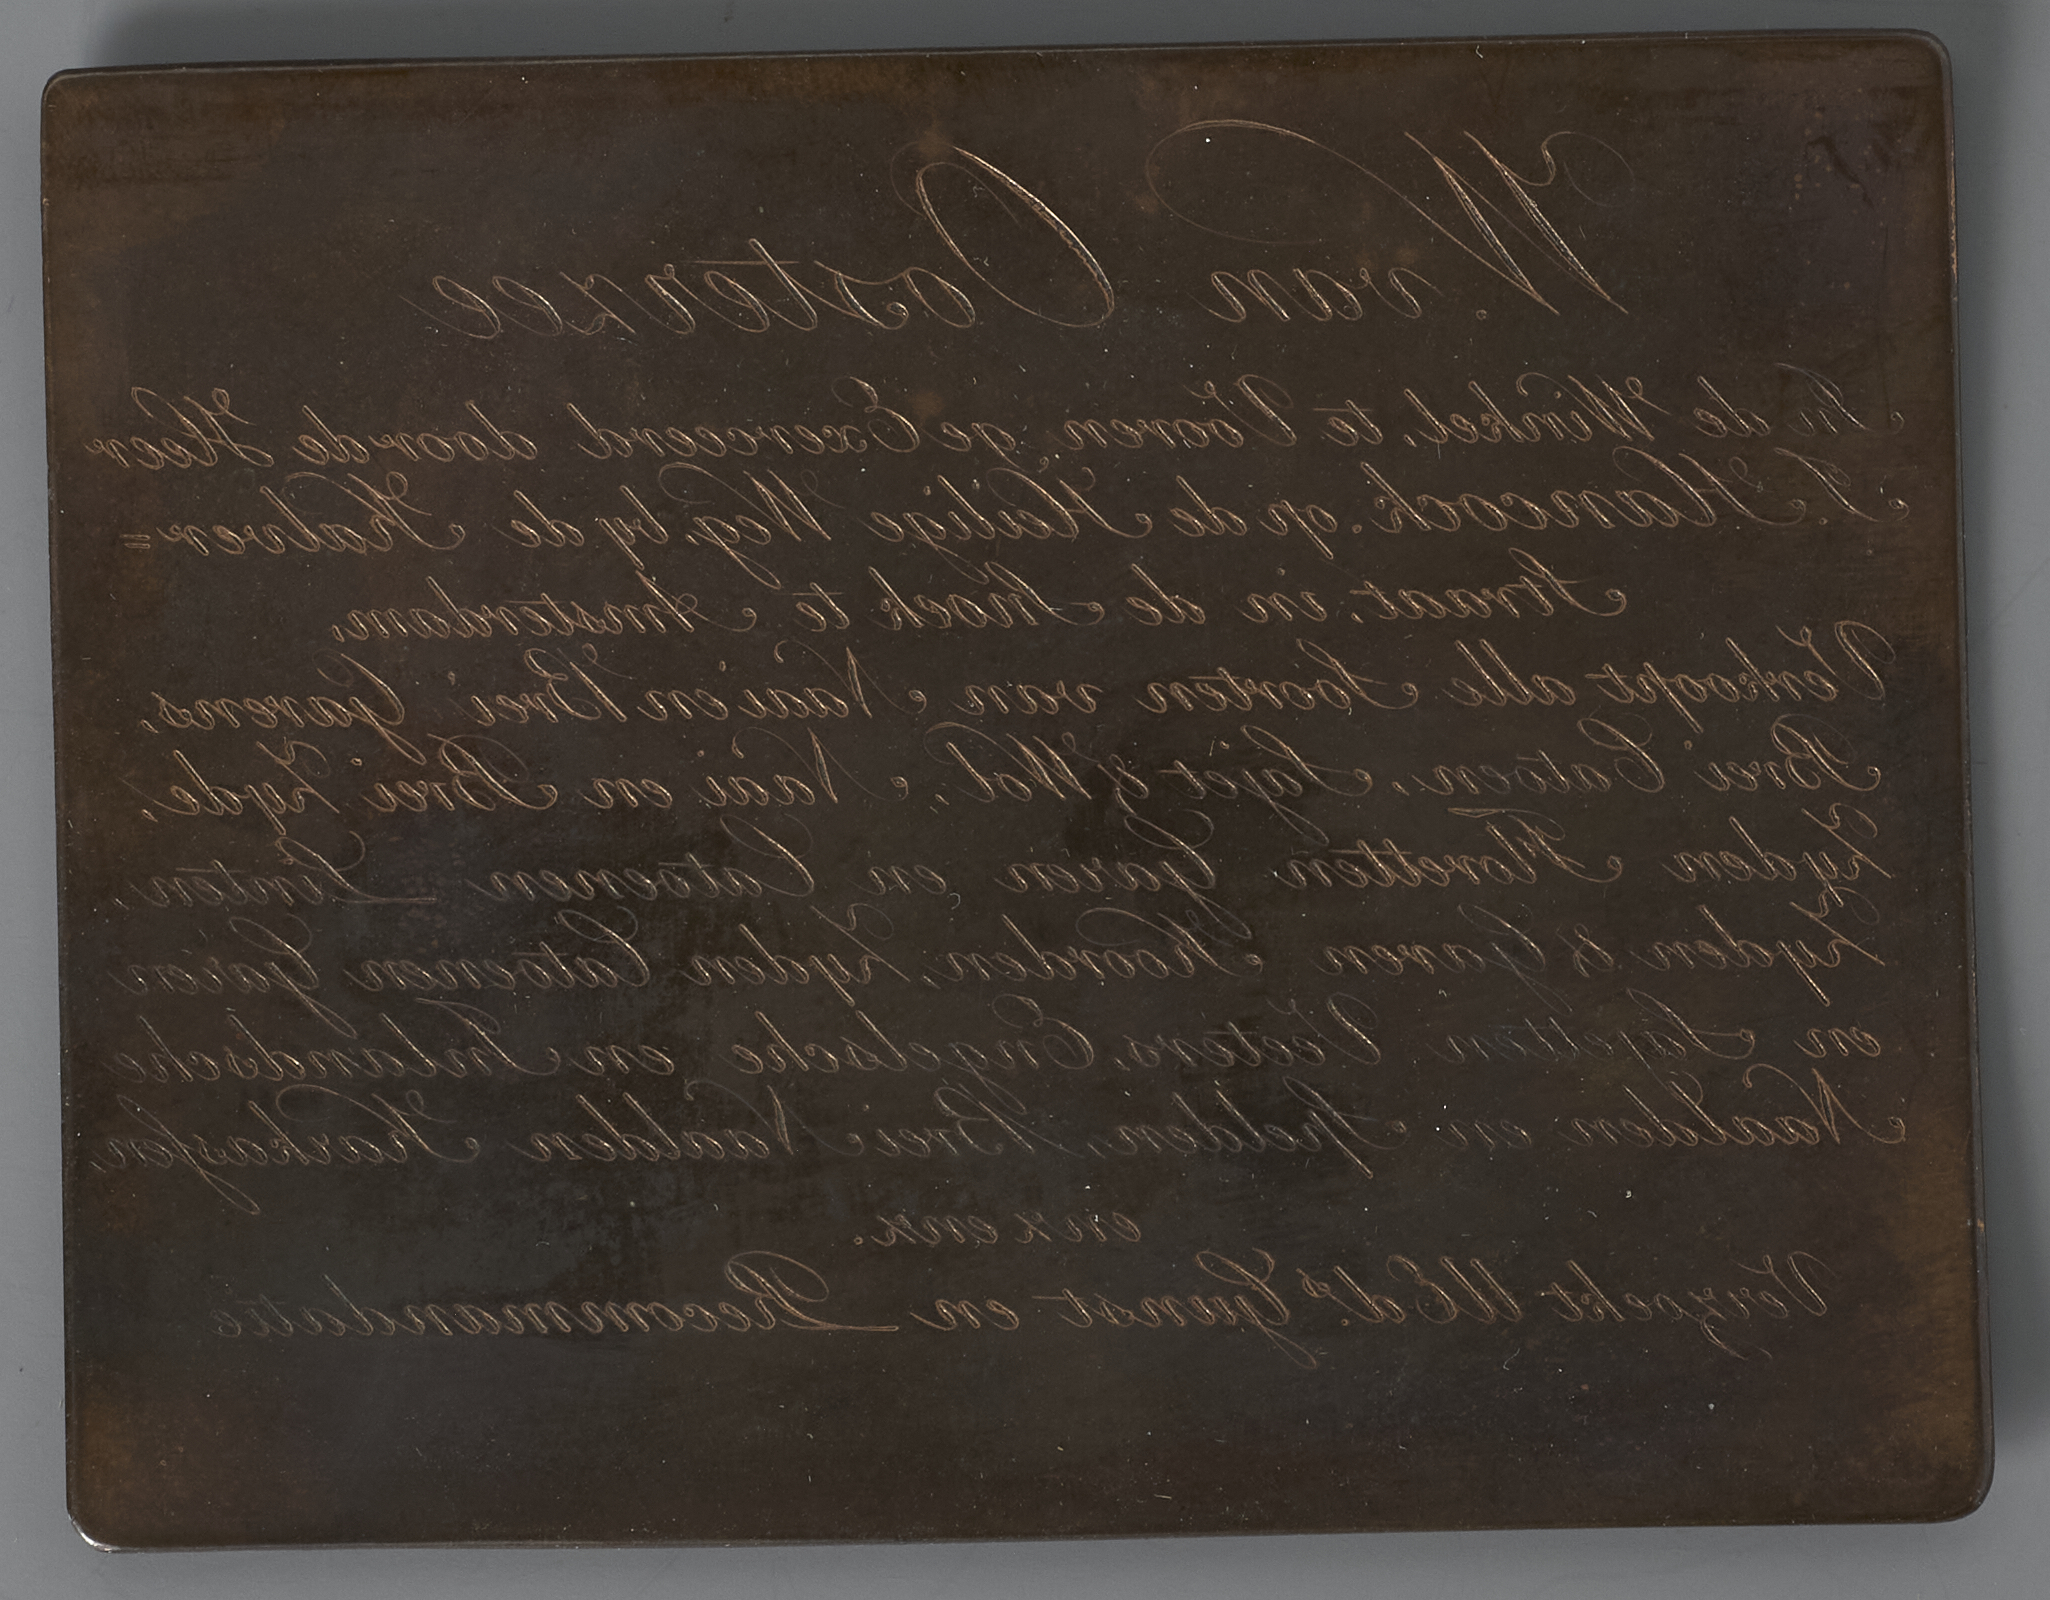 W. van Oosterzee
In de Winkel, te Vooren, ge Exerceerd door de Heer
J. Hancock. op de Heilige Weg, by de Kalver=
Straat, in de Snoek te Amsterdam,
Verkoopt alle Soorten van Naai en Brei Garens,
Brei Catoen, Sajet & Wol, Naai en Brei Zyde,
Zyden Floretten Garen en Catoenen Linten,
Zyden & Garen Koorden, Zyden Catoenen Garen
en Sajetten Veeters, Engelsche en Inlandsche
Naalden en Spelden, Brei Naalden Karkassen,
enz enz.
Verzoekt UEds. Gunst en Recommandatie